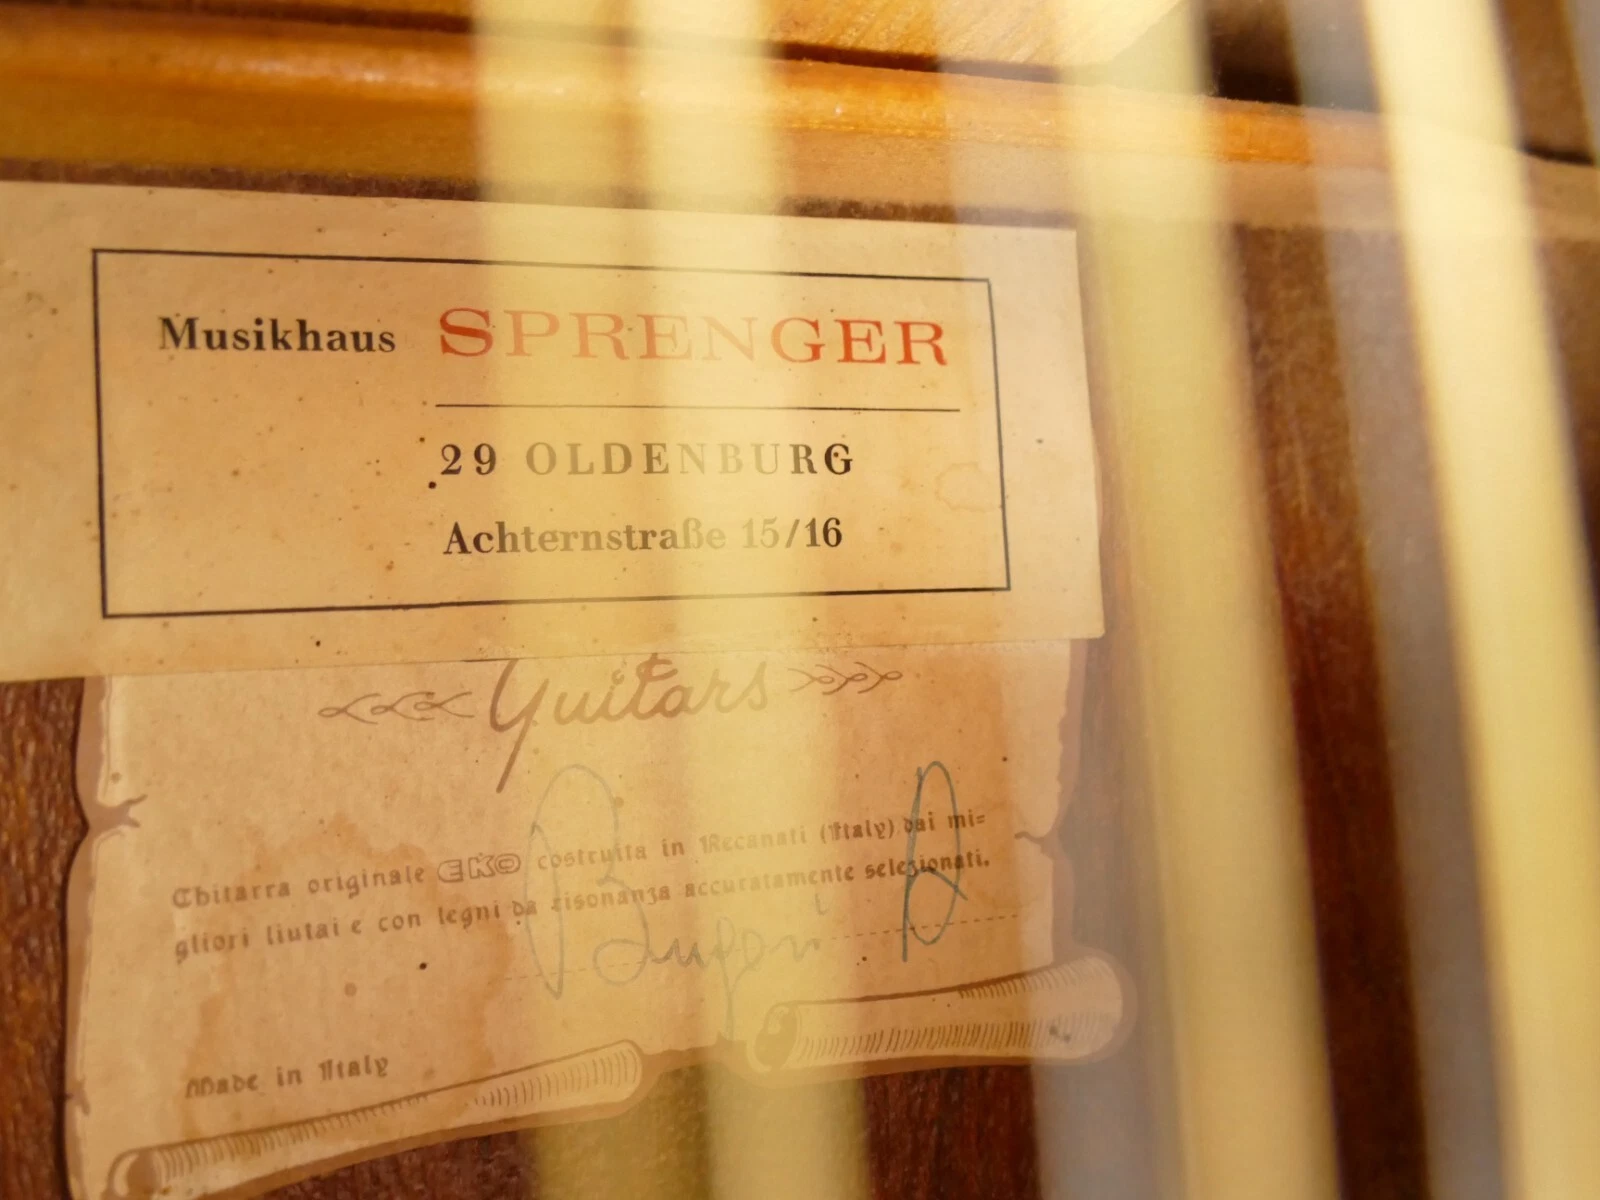 Musikhaus SPRENGER
29 OLDENBURG
Achternstraße 15/16
Guitars
Chitarra originale EKO costruita in Recanati (Italy) dai mi=
gliori liutai e con legni da risonanza accuratamente selezionati.
Made in Italy